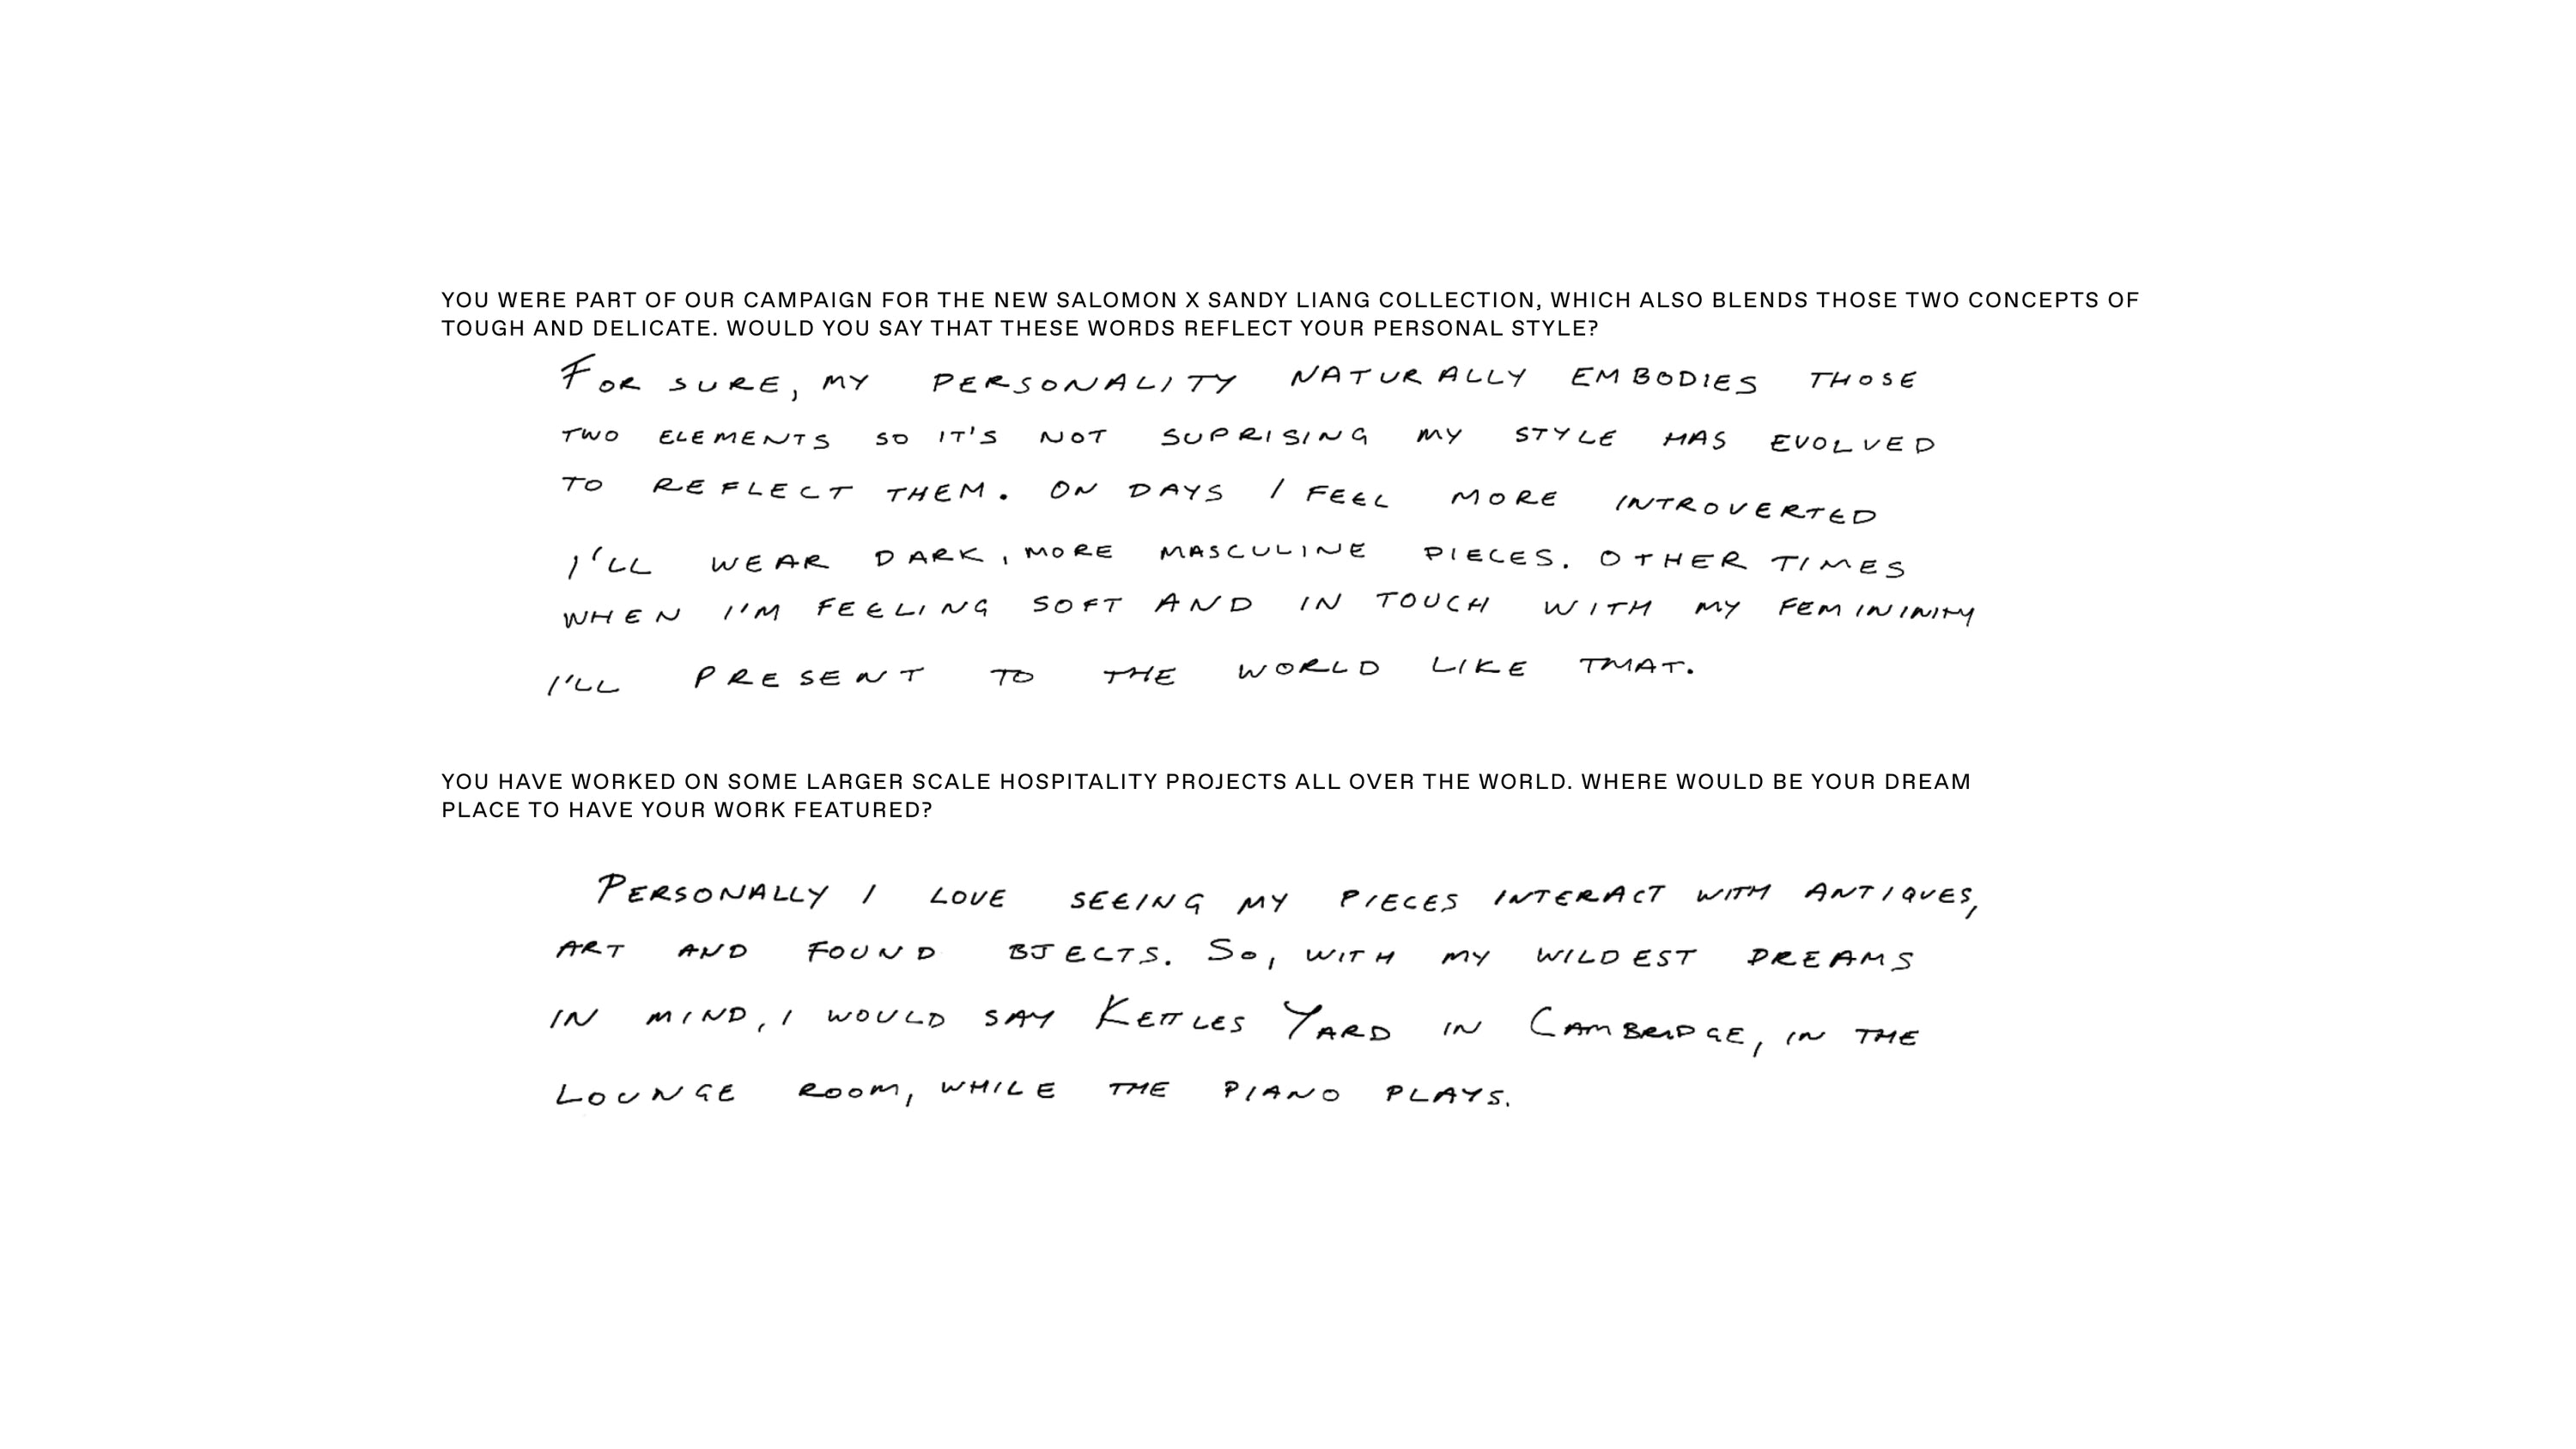 YOU WERE PART OF OUR CAMPAIGN FOR THE NEW SALOMON X SANDY LIANG COLLECTION, WHICH ALSO BLENDS THOSE TWO CONCEPTS OF
TOUGH AND DELICATE. WOULD YOU SAY THAT THESE WORDS REFLECT YOUR PERSONAL STYLE?
FOR SURE, MY PERSONALITY NATURALLY EMBODIES THOSE
TWO ELEMENTS SO IT'S NOT SUPRISING MY STYLE HAS EVOLVED
TO REFLECT THEM. ON DAYS I FEEL MORE INTROVERTED
I'LL WEAR DARK, MORE MASCULINE PIECES. OTHER TIMES
WHEN I'M FEELING SOFT AND IN TOUCH WITH MY FEMININITY
I'LL PRESENT TO THE WORLD LIKE THAT.
YOU HAVE WORKED ON SOME LARGER SCALE HOSPITALITY PROJECTS ALL OVER THE WORLD. WHERE WOULD BE YOUR DREAM
PLACE TO HAVE YOUR WORK FEATURED?
PERSONALLY I LOVE SEEING MY PIECES INTERACT WITH ANTIQUES,
ART AND FOUND BJECTS. SO, WITH MY WILDEST DREAMS
IN MIND, I WOULD SAY KETTLES YARD IN CAMBRIDGE, IN THE
LOUNGE ROOM, WHILE THE PIANO PLAYS.